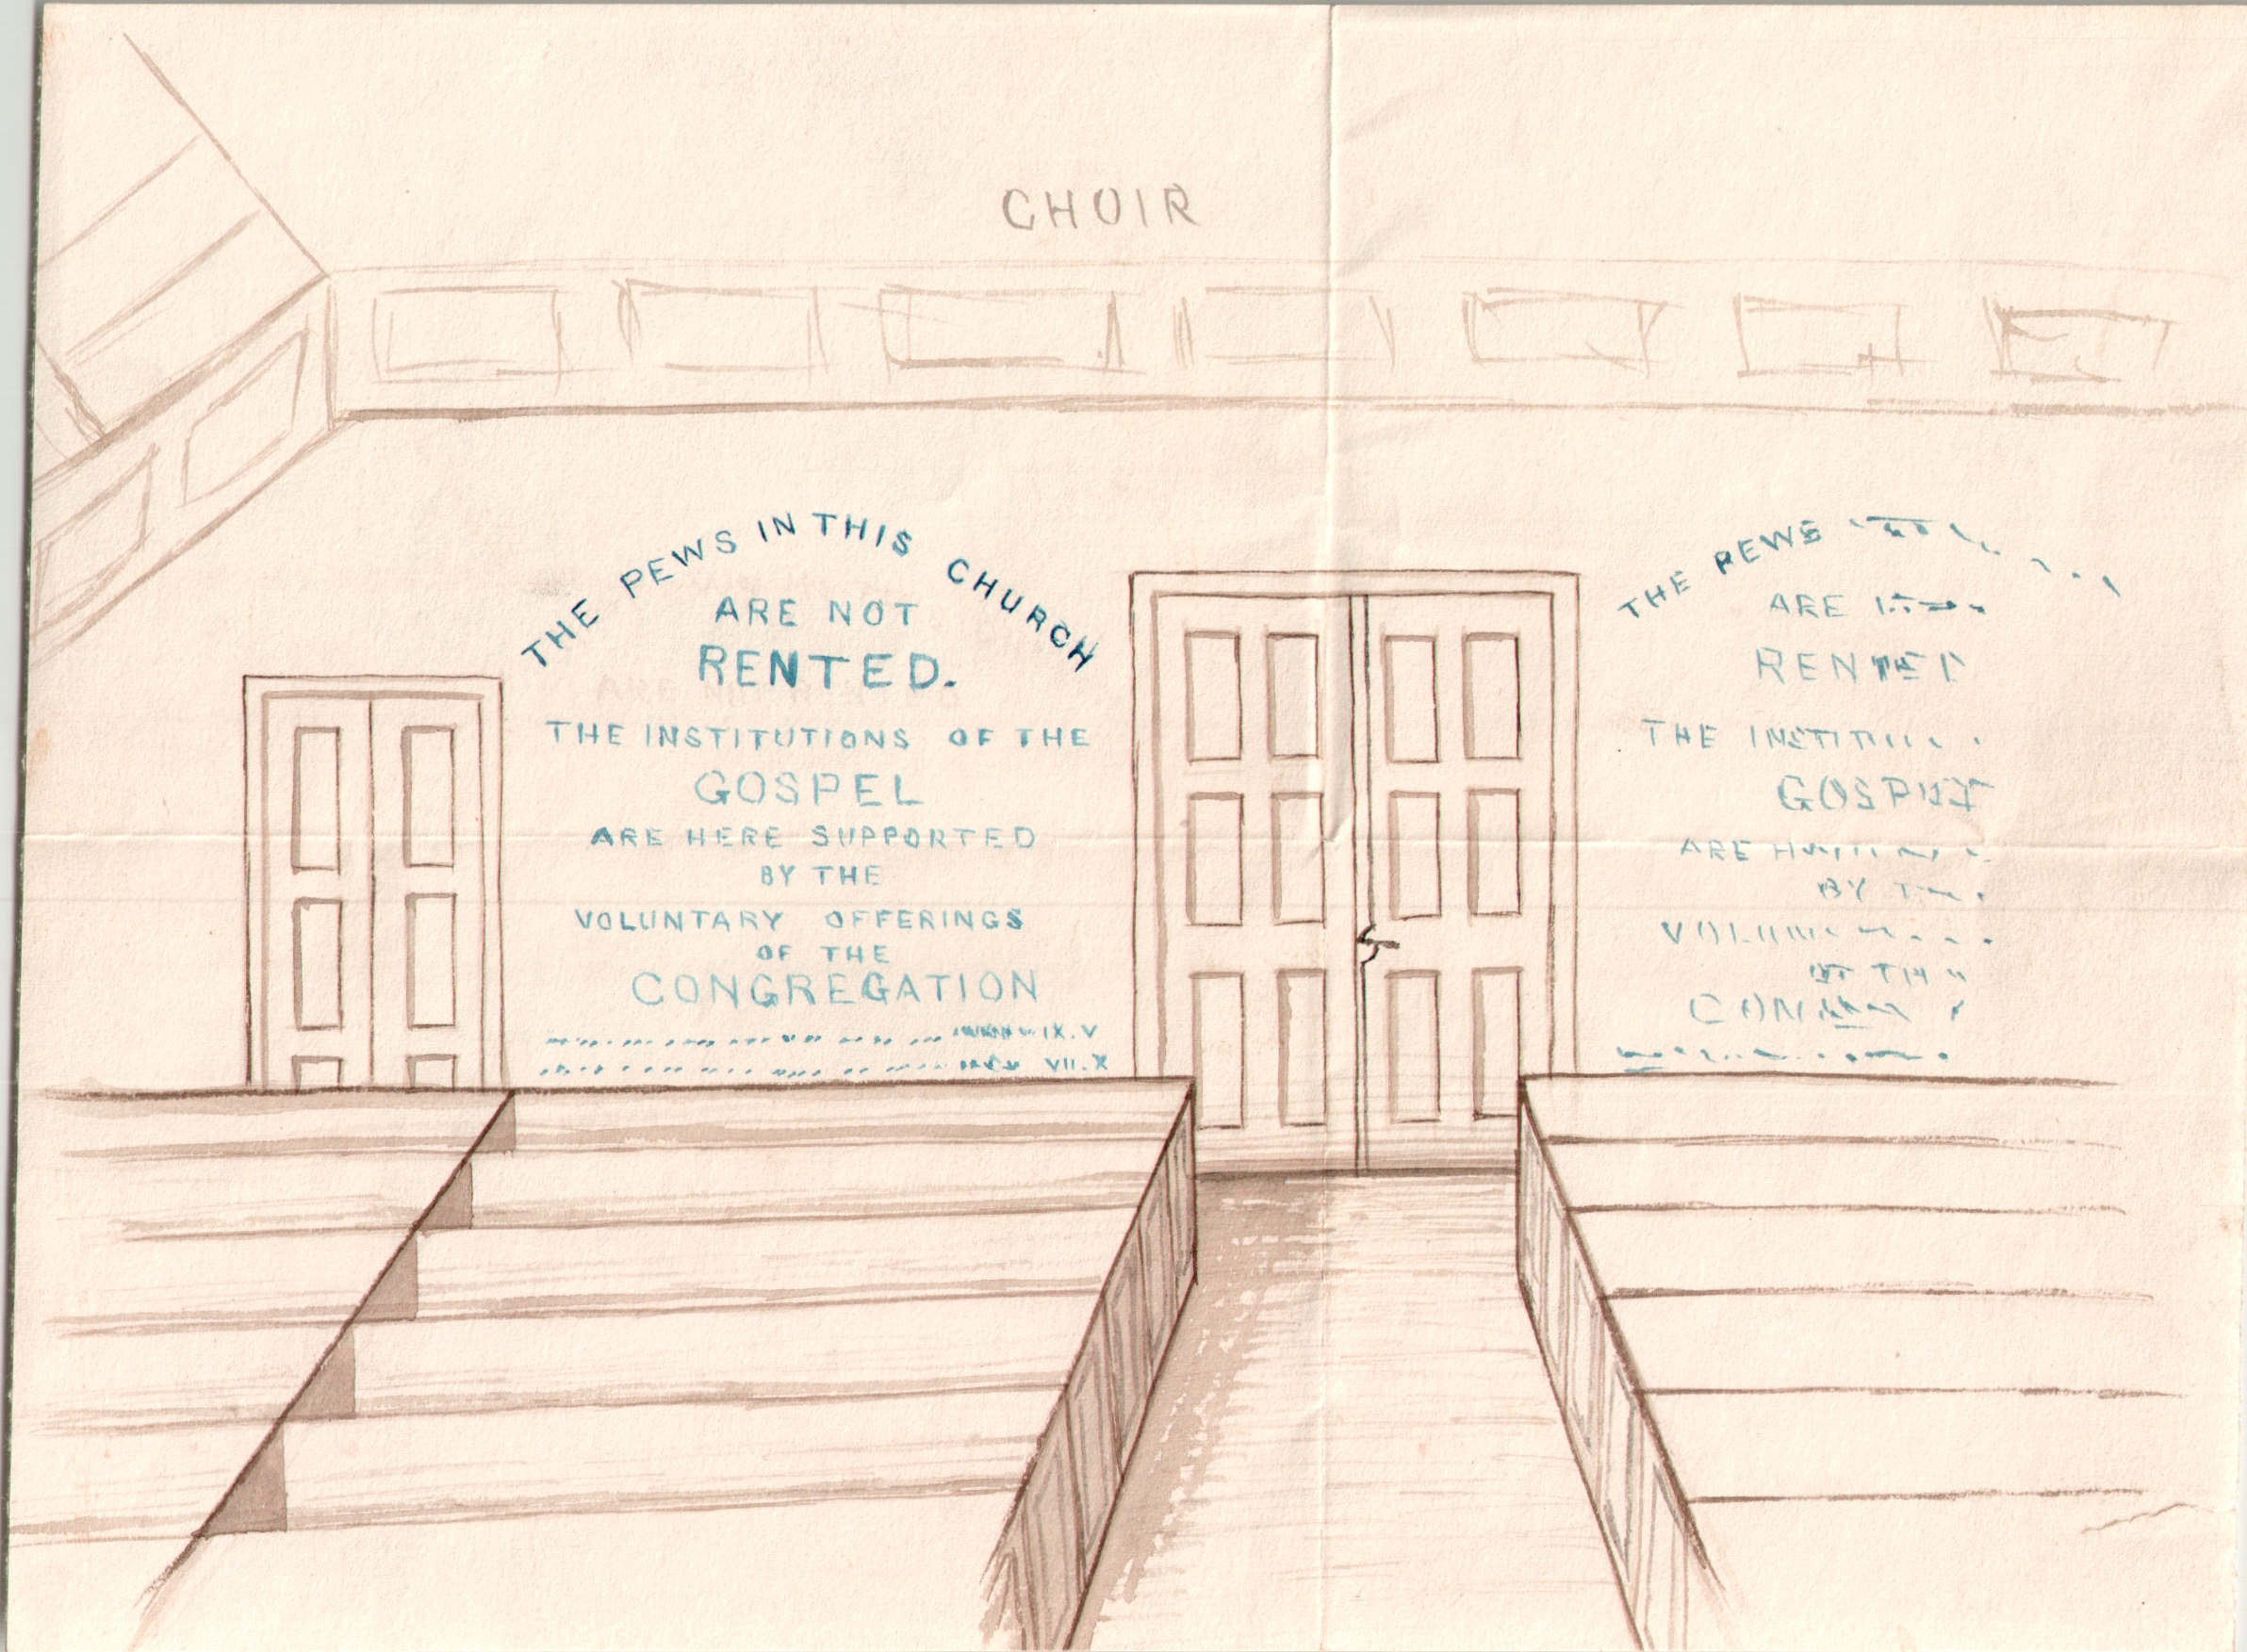 CHOIR
THE PEWS IN THIS CHURCH
ARE NOT
RENTED.
THE INSTITUTIONS OF THE
GOSPEL
ARE HERE SUPPORTED
BY THE
VOLUNTARY OFFERINGS
OF THE
CONGREGATION
IX.V
VII.X
THE PEWS
ARE
RENTED
THE
GOSPEL
ARE
BY